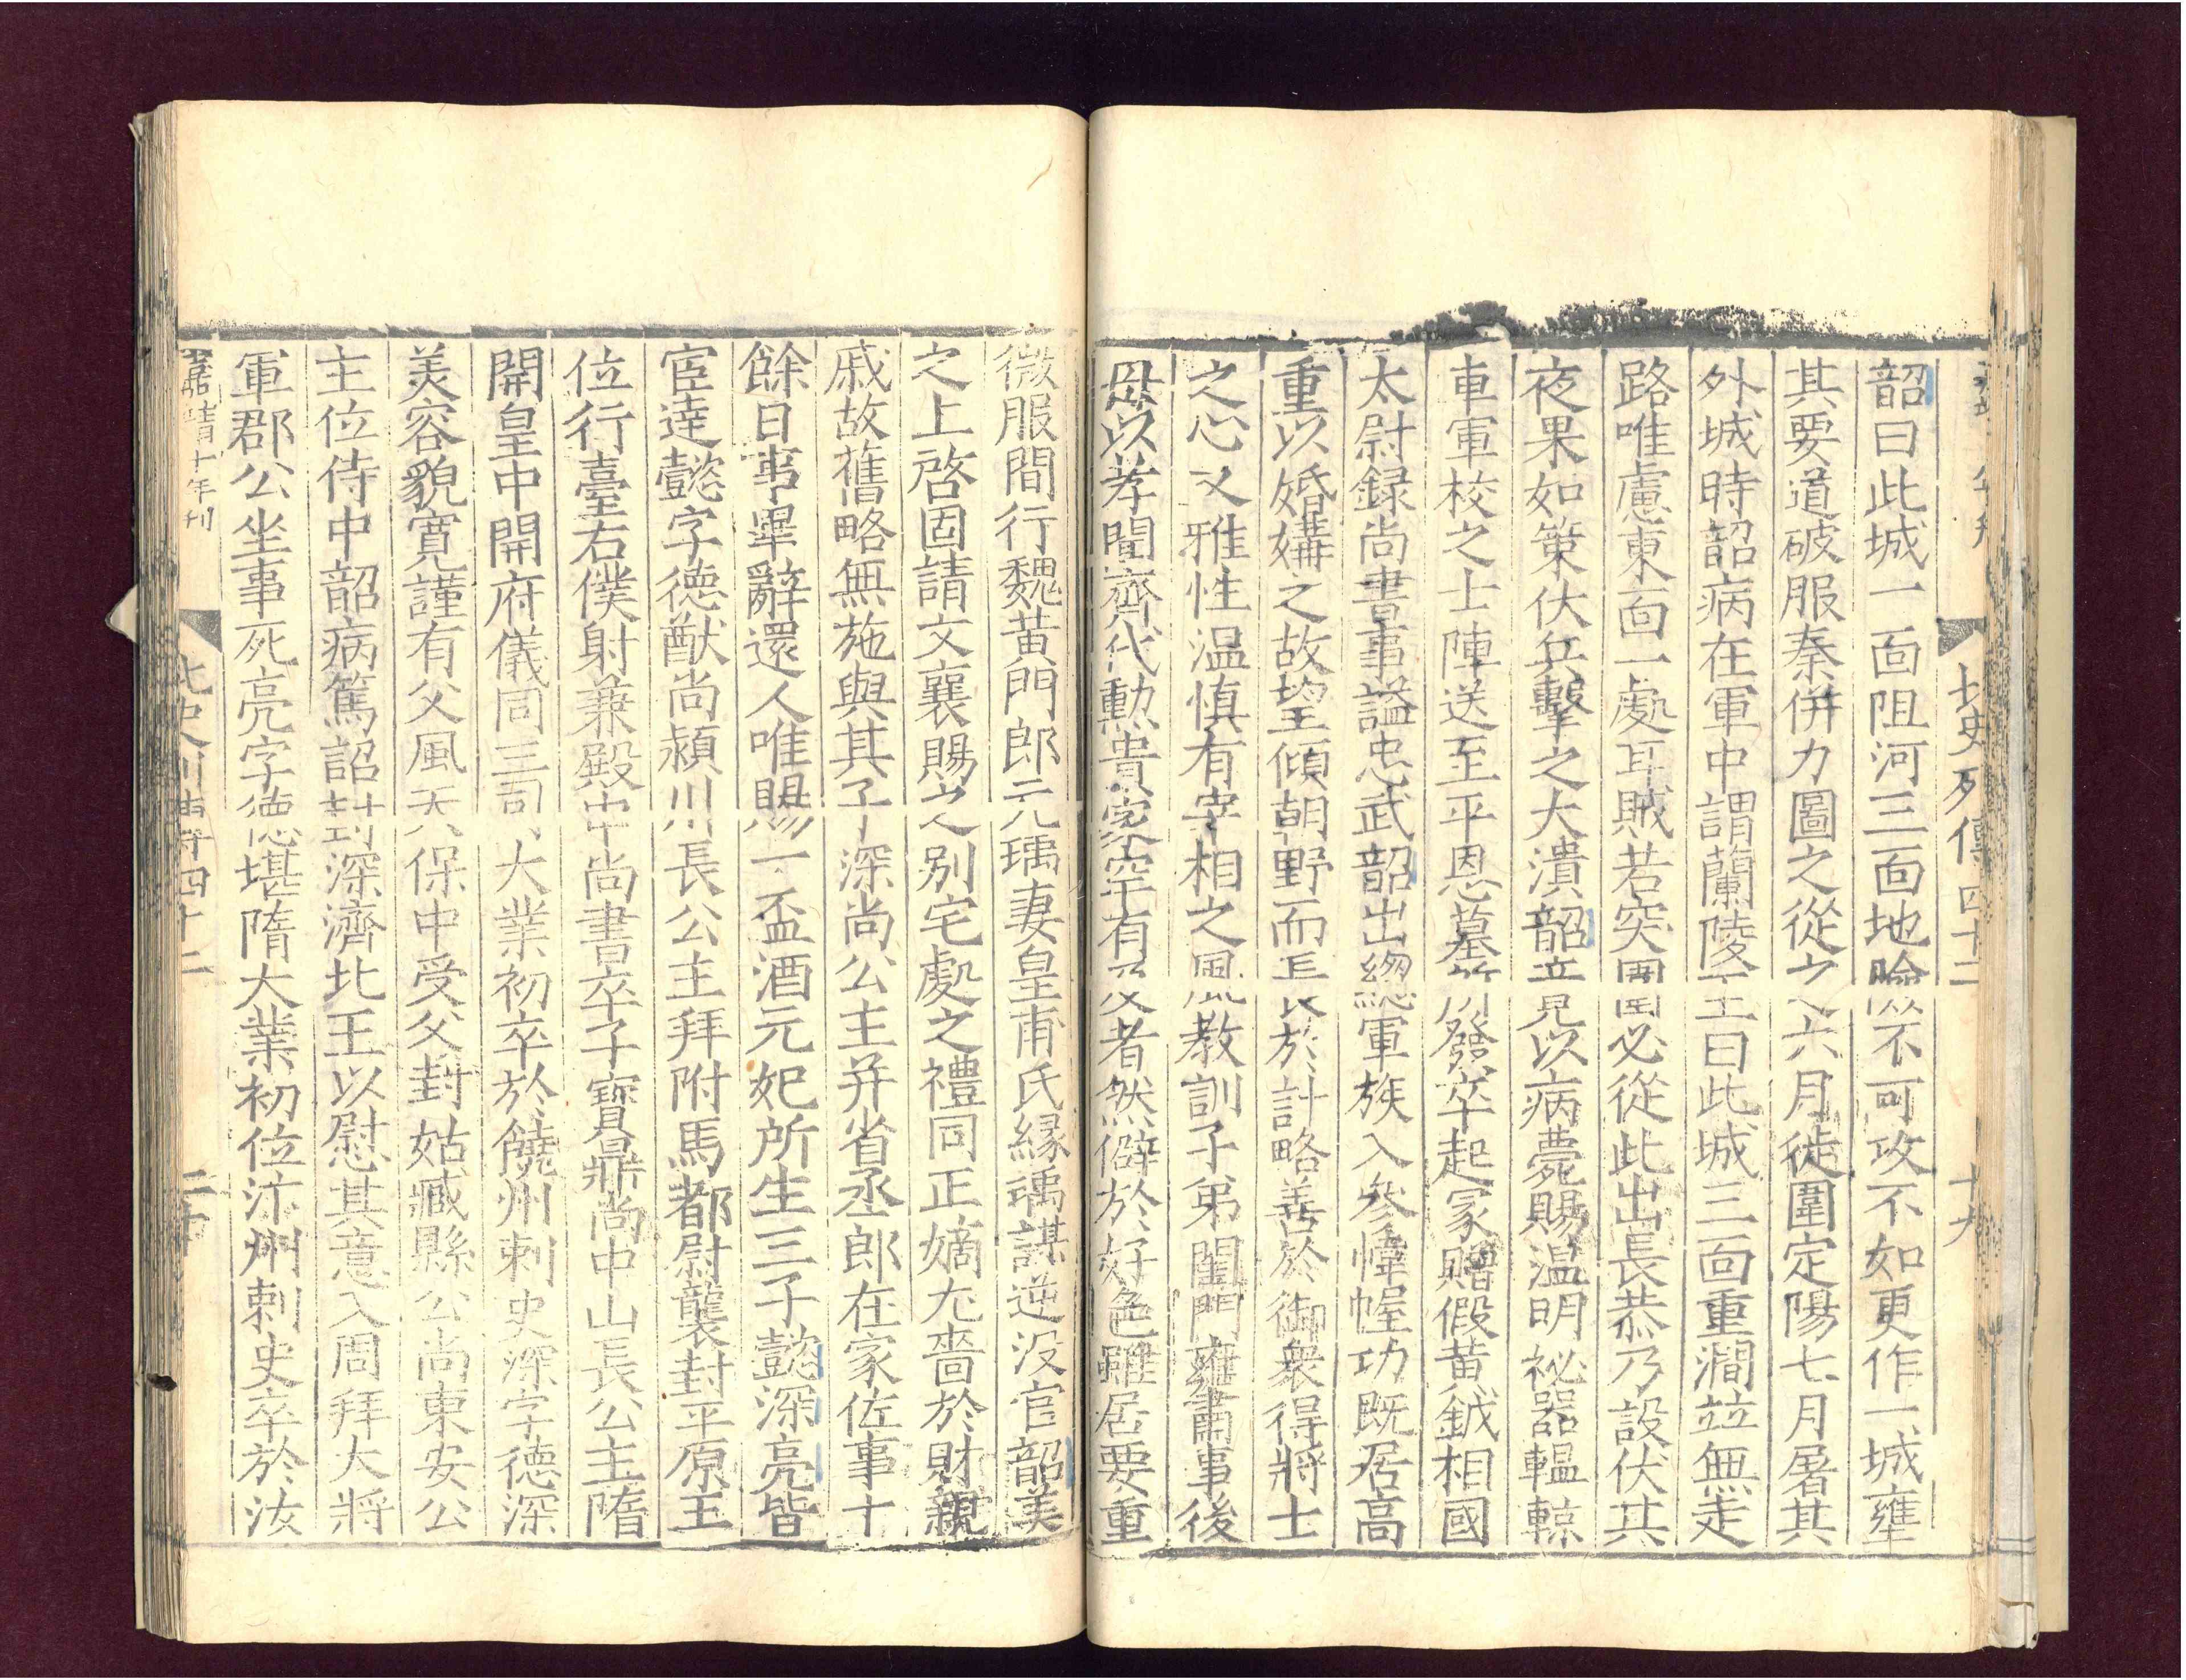 北史列傳四十二 十九
韶曰此城一面阻河三面地險不可攻不如更作一城壅
其要道破服秦併力圖之從之六月徙圍定陽七月屠其
外城時韶病在軍中謂蘭陵王曰此城三面重澗竝無走
路唯慮東面一處耳賊若突圍必從此出長恭乃設伏其
夜果如策伏兵擊之大潰韶竟以病薨賜溫明祕器轀輬
車軍校之士陣送至平恩墓所發卒起冢贈假黃鉞相國
太尉録尚書事謚忠武韶出總軍族入參幃幄功既居高
重以婚媾之故望傾朝野而長於計略善於御衆得將士
之心又雅性溫慎有宰相之風教訓子弟閨門雍肅事後
母以孝聞齊代勳貴家罕有及者然僻於好色雖居要重
微服間行魏黃門郎元瑀妻皇甫氏緣瑀謀逆没官韶美
之上啓固請文襄賜之别宅處之禮同正嫡尢嗇於財親
戚故舊略無施與其子深尚公主并省丞郎在家佐事十
餘日事畢辭還人唯賜一盃酒元妃所生三子懿深亮皆
宦達懿字德猷尚潁川長公主拜附馬都尉襲封平原王
位行臺右僕射兼殿中尚書卒子寶鼎尚中山長公主隋
開皇中開府儀同三司大業初卒於饒州刺史深字德深
美容貌寬謹有父風天保中受父封姑臧縣公尚東安公
主位侍中韶病篤詔封深濟北王以慰其意入周拜大將
軍郡公坐事死亮字德堪隋大業初位汴州刺史卒於汝
嘉靖十年刊 北史列傳四十二 二十